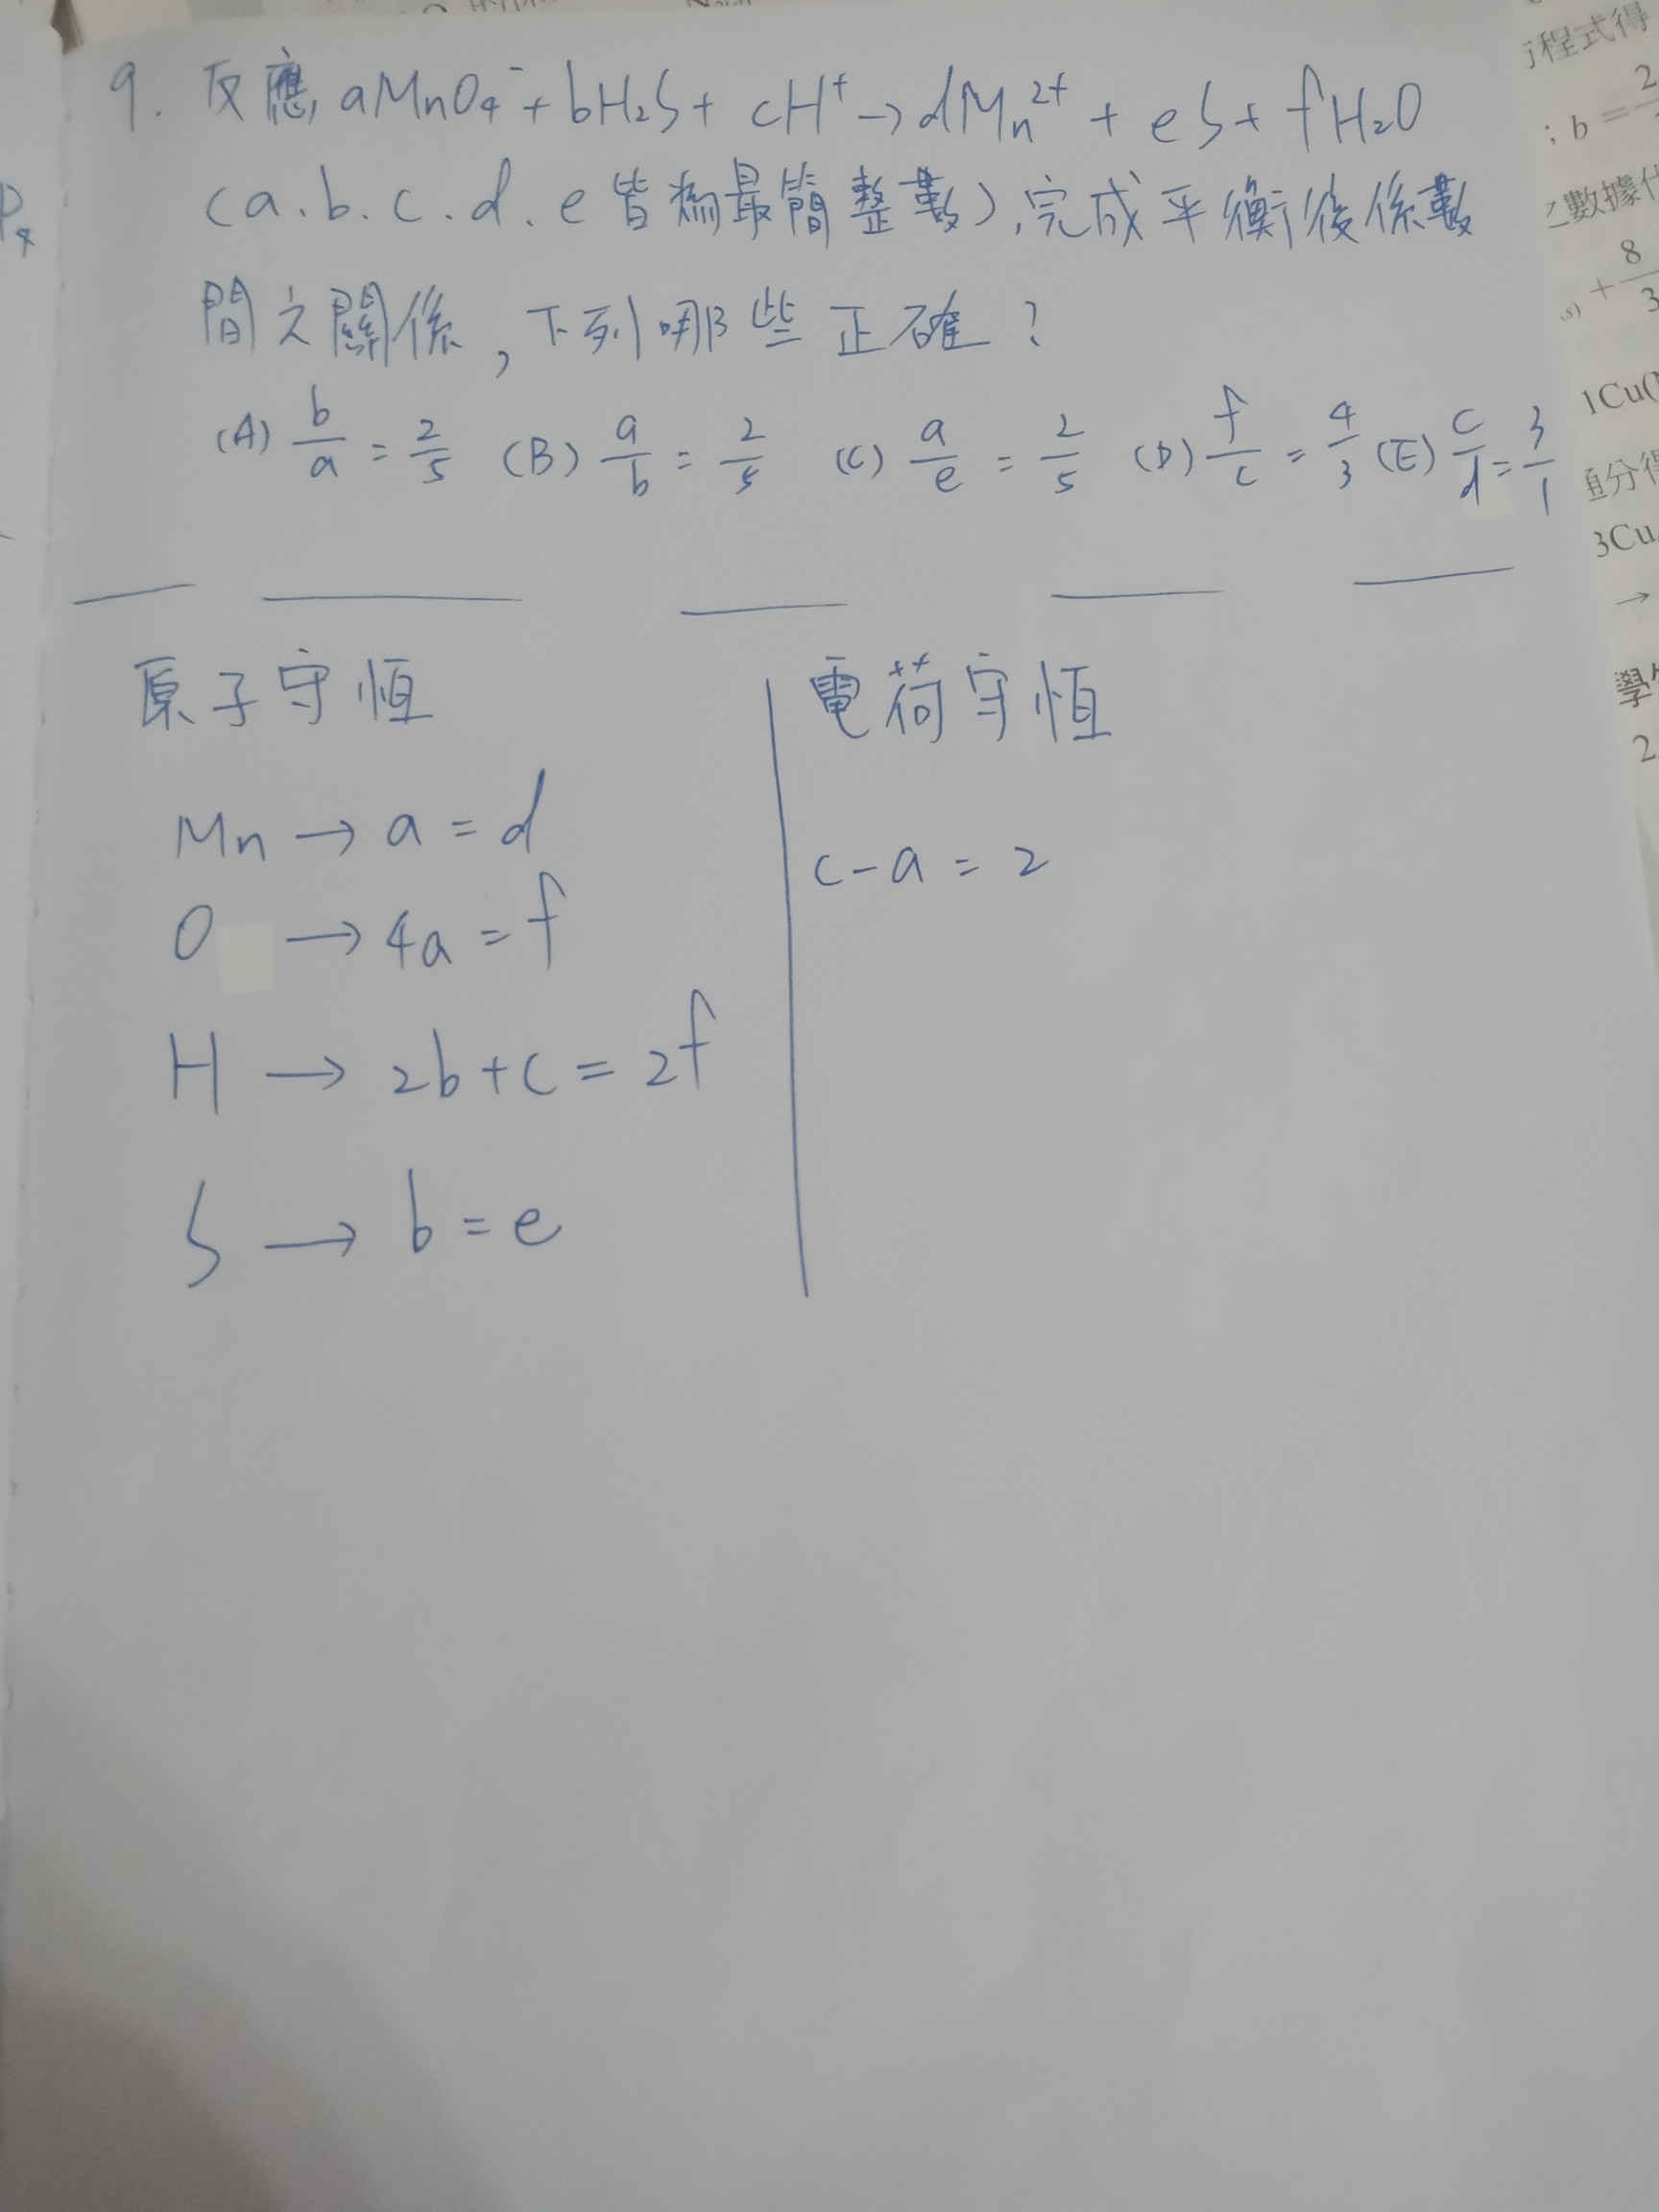 9. 反應, aMnO₄⁻ + bH₂S + cH⁺ → dMn²⁺ + eS + fH₂O
(a.b.c.d.e皆為最簡整數),完成平衡後係數
間之關係,下列哪些正確?
(A) b/a = 2/5 (B) a/b = 2/5 (C) a/e = 2/5 (D) f/c = 4/3 (E) c/d = 3/1
原子守恆
Mn → a = d
O → 4a = f
H → 2b + c = 2f
S → b = e
電荷守恆
c - a = 2
程式得
; b = 2
數據代
(s) + 8/3
1Cu(
值分得
3Cu
→
學
2